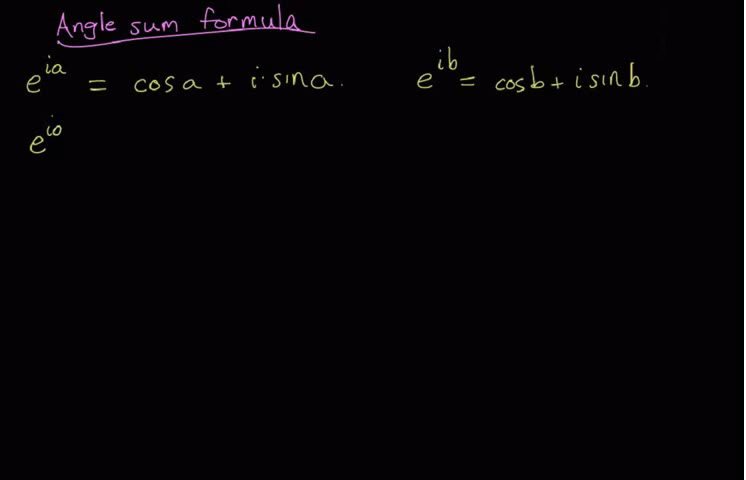 Angle sum formula
e^{ia} = cos a + i · sin a. e^{ib} = cos b + i sin b.
e^{io}